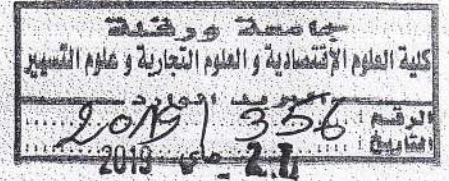 جامعة ورقلة
كلية العلوم الإقتصادية و العلوم التجارية و علوم التسيير
البريد الوارد
الرقم : 356 / 2019
التاريخ : ماي 2019